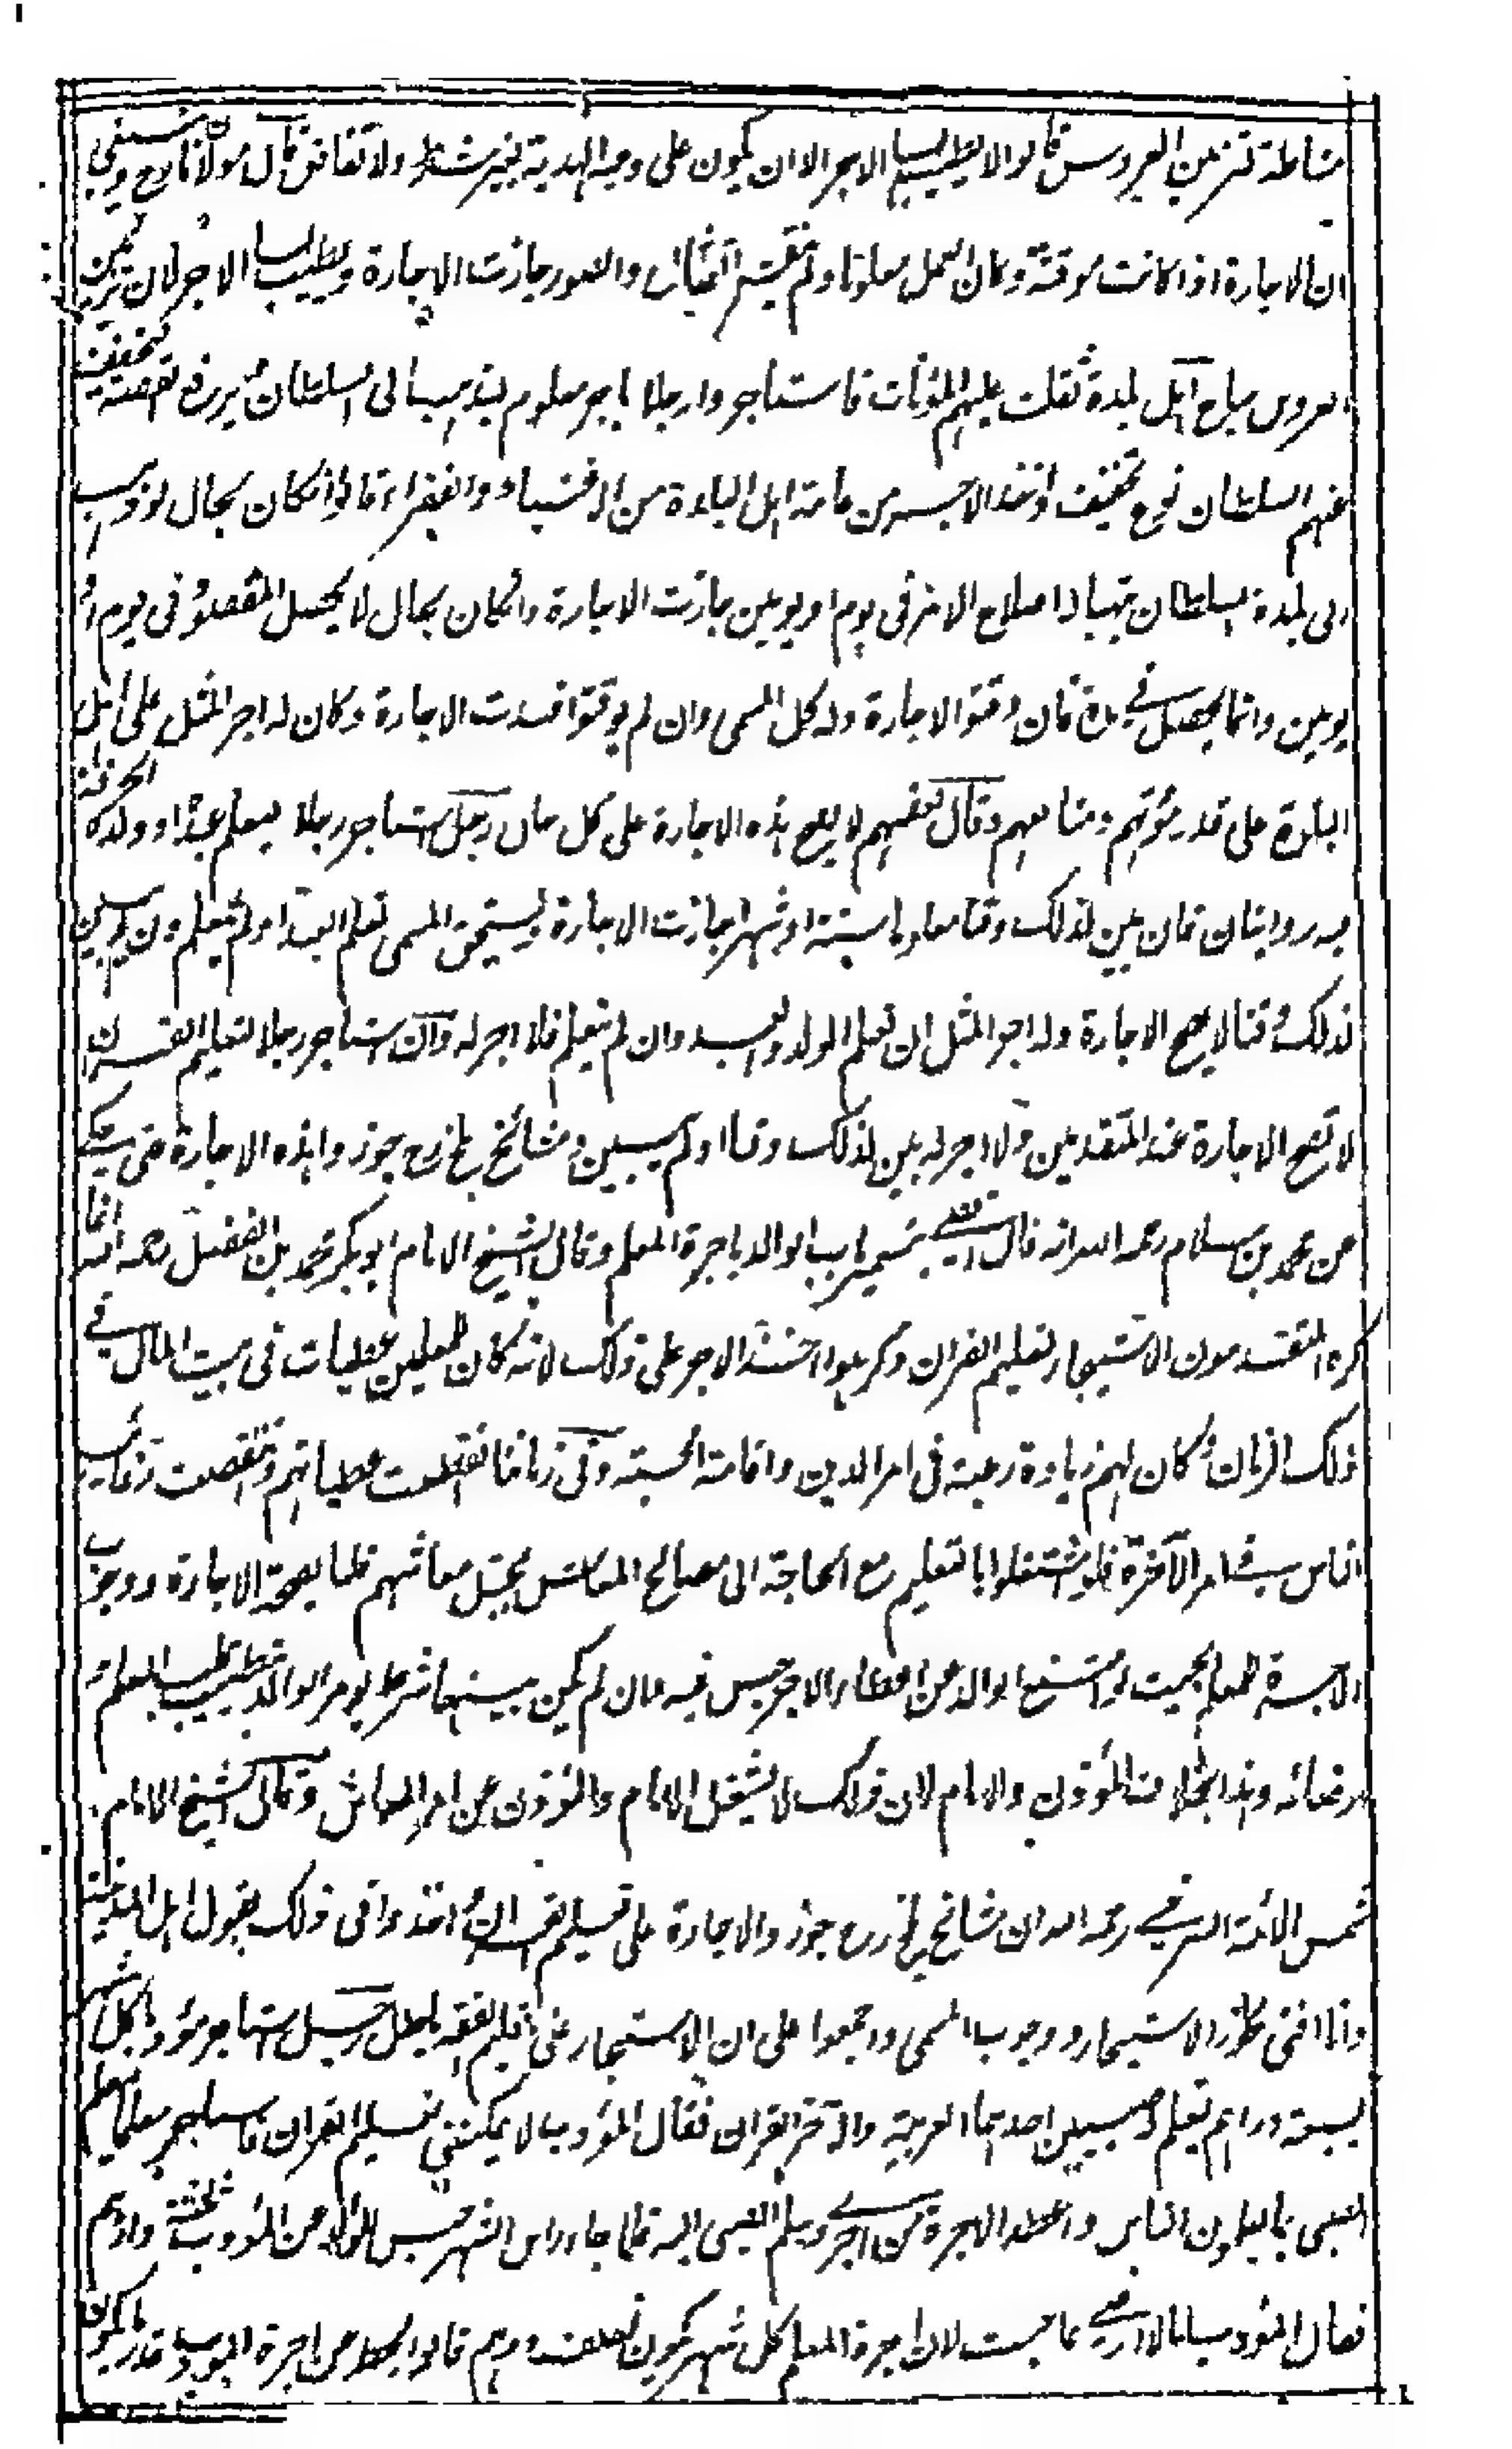 مشاطة تزين العروس قالوا لا يطيب لها الاجر الا ان يكون على وجه الهدية بغير شرط ولا تقاض قال مولانا رح وينبغي
ان الاجارة اذا كانت موقتة وكان العمل معلوما ولم ينقش التماثيل والصور جازت الاجارة ويطيب لها الاجر لان تزيين
العروس مباح اهل بلدة ثقلت عليهم المؤنات فاستاجروا رجلا باجر معلوم ليذهب الى السلطان ويرفع القصة ليخفف
عنهم السلطان نوع تخفيف واخذ الاجر من عامة اهل البلدة من الاغنياء والفقراء قالوا ان كان بحال لو ذهب
الى بلدة السلطان يتهيأ له اصلاح الامر في يوم او يومين جازت الاجارة وان كان بحال لا يحصل المقصود في يوم او
يومين وانما يحصل في مدة فان وقتوا الاجارة وله كل المسمى وان لم يوقتوا فسدت الاجارة وكان له اجر المثل على اهل
البلدة على قدر مؤنتهم ومنافعهم وقال بعضهم لا يصح هذه الاجارة على كل حال رجل استاجر رجلا ليعلم عبده او ولده الحرفة
فيه روايتان فان بين لذلك وقتا معلوما سنة او شهرا جازت الاجارة ويستحق المسمى تعلم العبد او لم يتعلم وان لم يبين
لذلك وقتا لا يصح الاجارة وله اجر المثل ان تعلم الولد والعبد وان لم يتعلم فلا اجر له وان استاجر رجلا لتعليم القران
لا تصح الاجارة عند المتقدمين ولا اجر له بين لذلك وقتا او لم يبين ومشائخ بلخ رح جوزوا هذه الاجارة حتى حكي
عن محمد بن سلام رحمه الله انه قال اقضي بتسمير باب الوالد باجرة المعلم وقال الشيخ الامام ابو بكر محمد بن الفضل رحمه الله انما
كره المتقدمون الاستيجار لتعليم القران وكرهوا اخذ الاجر على ذلك لانه كان للمعلمين عطيات في بيت المال في
ذلك الزمان وكان لهم زيادة رغبة في امر الدين واقامة الحسبة وفي زماننا انقطعت عطياتهم وانتقصت رغائب
الناس في امر الآخرة فلو اشتغلوا بالتعليم مع الحاجة الى مصالح المعاش يختل معاشهم قلنا بصحة الاجارة ووجوب
الاجرة للمعلم بحيث لو امتنع الوالد عن اعطاء الاجر حبس فيه وان لم يكن بينهما شرط يومر الوالد بتطييب قلب المعلم و
ارضائه وهذا بخلاف المؤذن والامام لان ذلك لا يشغل الامام والمؤذن عن امر المعاش وقال الشيخ الامام
شمس الائمة السرخسي رحمه الله ان مشائخ بلخ رح جوزوا الاجارة على تعليم القران واخذوا في ذلك بقول اهل المدينة
وانا افتي بجواز الاستيجار ووجوب المسمى واجمعوا على ان الاستيجار على تعليم الفقه باطل رجل استاجر مؤدبا كل شهر
بستة دراهم بتعليم صبيين احدهما العربية والآخر القران فقال المؤدب لا يمكنني تعليم القران فاستاجر معلما يعلم
الصبي بما يعلمون الناس واعطه الاجرة من اجري وسلم الصبي اليه فلما جاء راس الشهر حبس الوالد من المؤدب ثلثة دراهم
فقال المؤدب انا لا ارضى بما حبست لان اجرة المعلم كل شهر يكون نصف درهم قالوا يحط من اجرة المؤدب قدر ما يكون